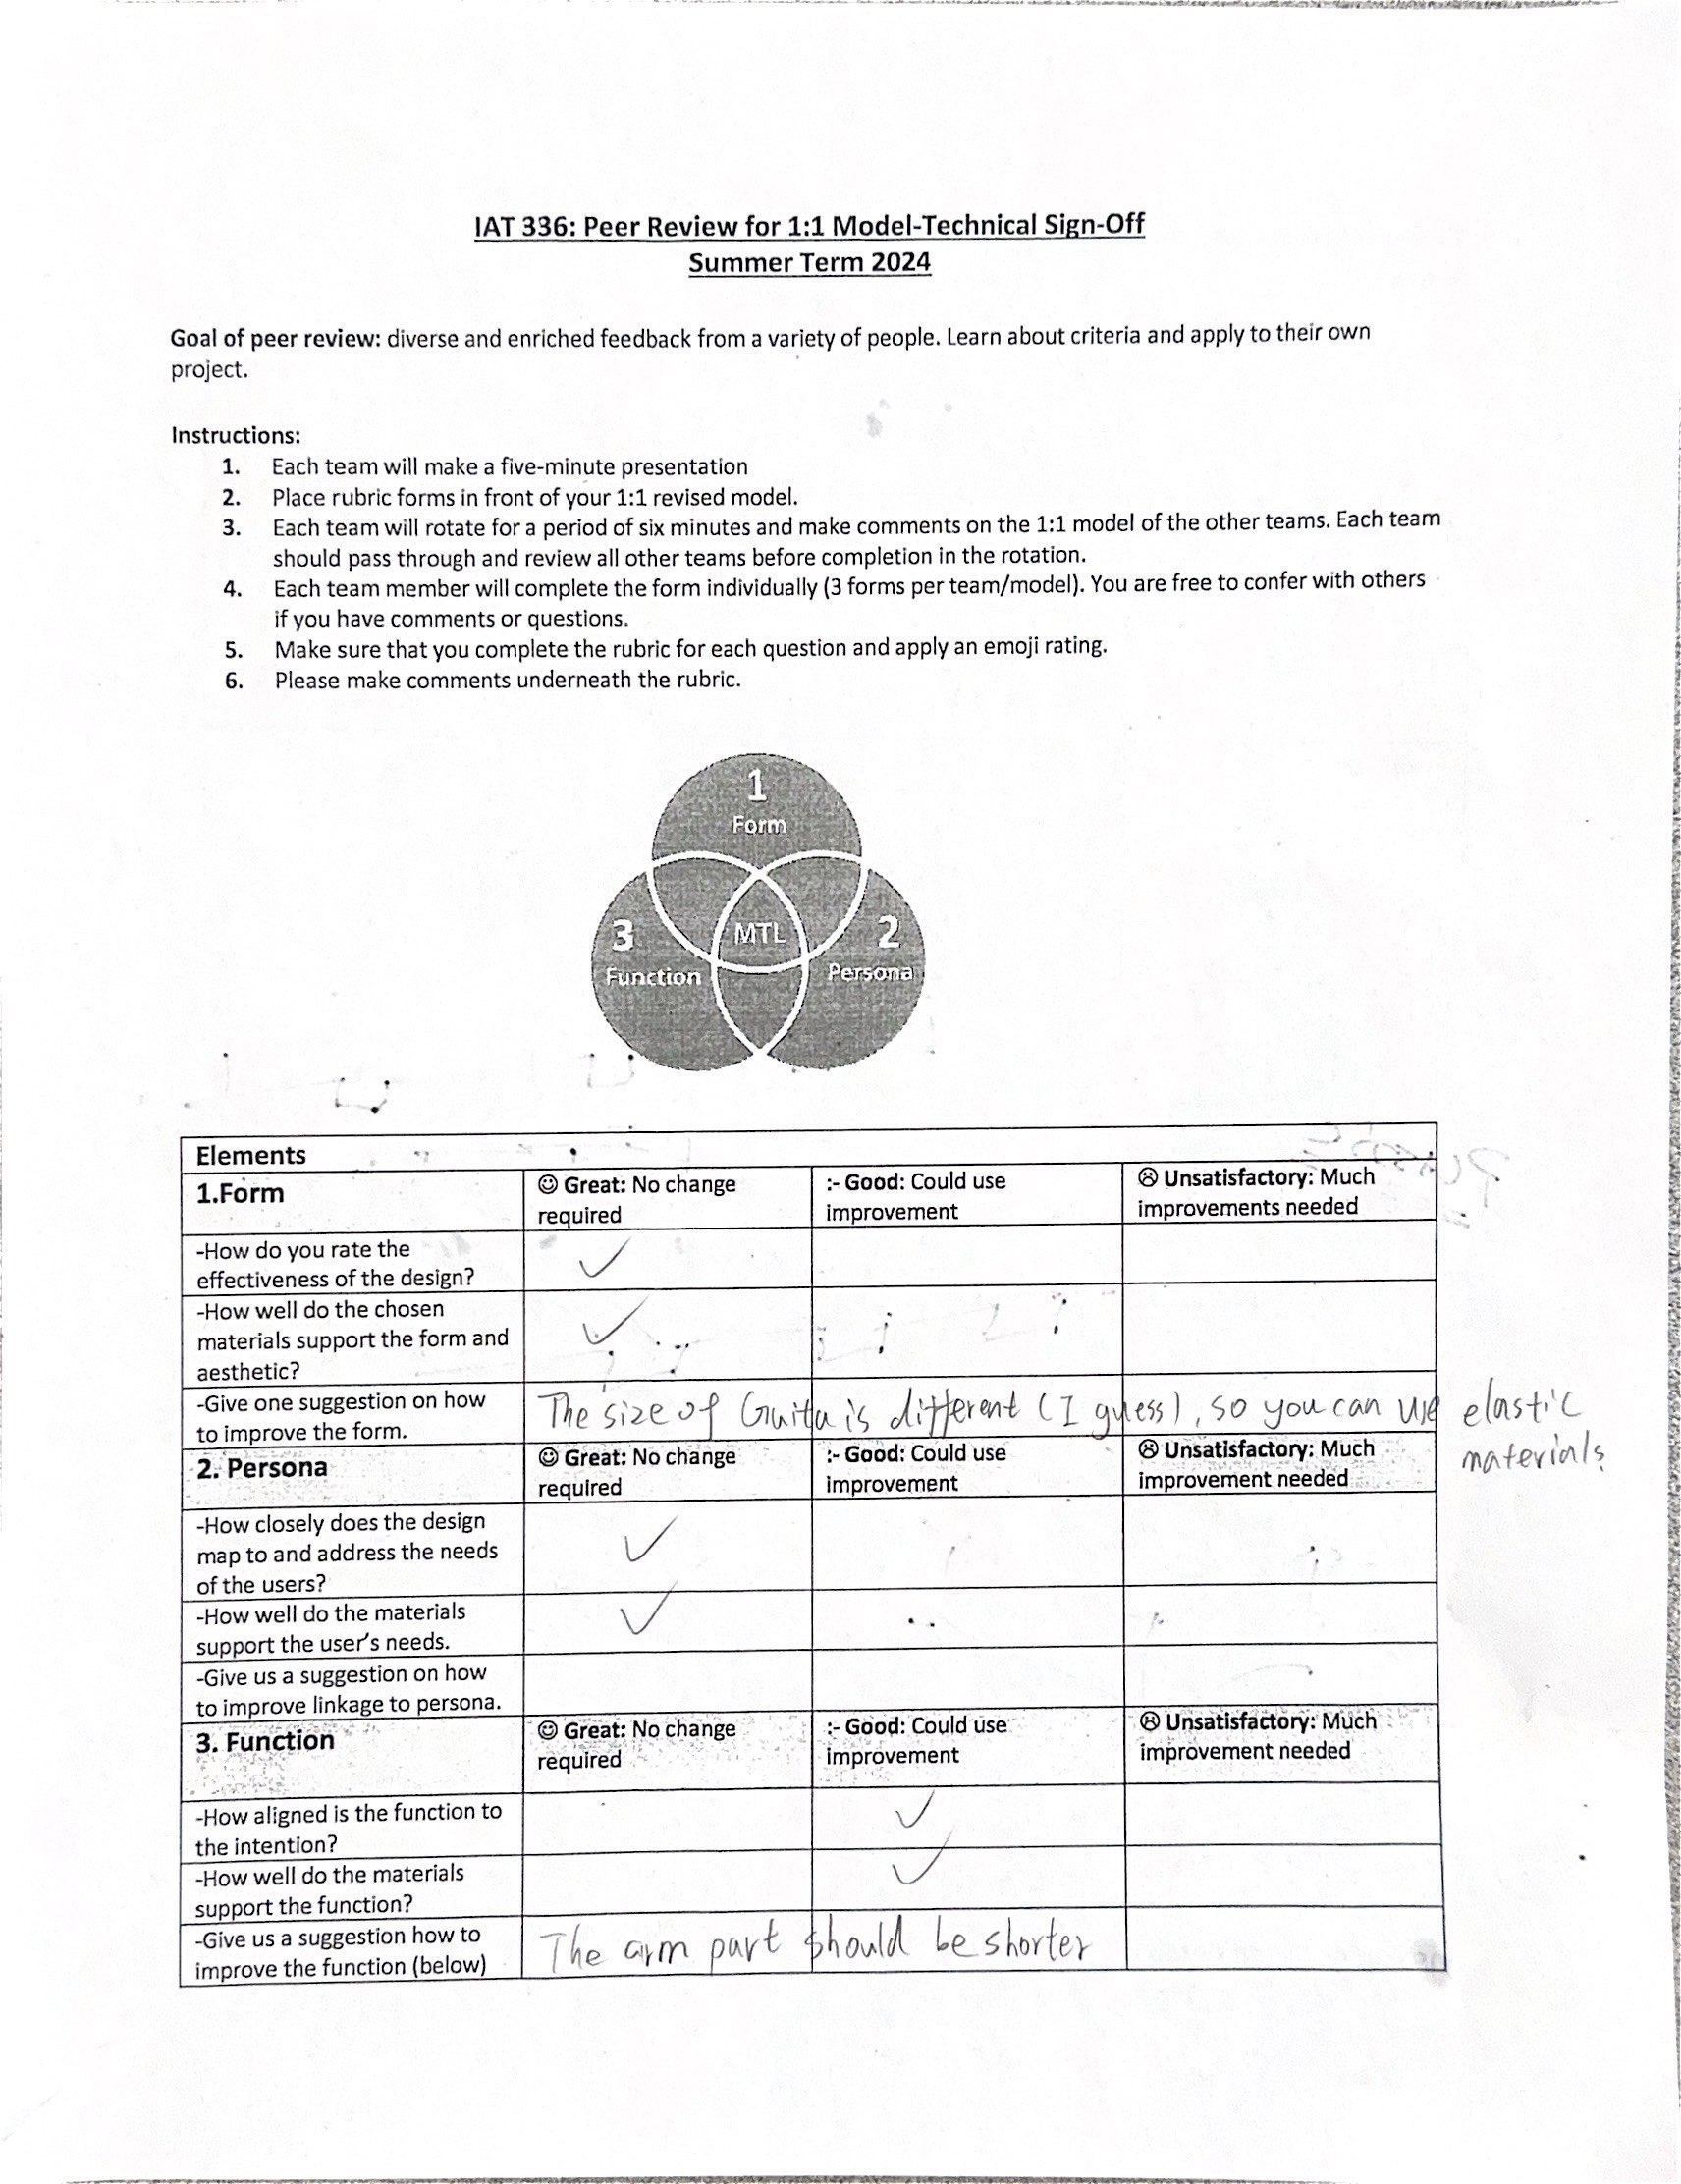 IAT 336: Peer Review for 1:1 Model-Technical Sign-Off
Summer Term 2024
Goal of peer review: diverse and enriched feedback from a variety of people. Learn about criteria and apply to their own
project.
Instructions:
1. Each team will make a five-minute presentation
2. Place rubric forms in front of your 1:1 revised model.
3. Each team will rotate for a period of six minutes and make comments on the 1:1 model of the other teams. Each team
should pass through and review all other teams before completion in the rotation.
4. Each team member will complete the form individually (3 forms per team/model). You are free to confer with others
if you have comments or questions.
5. Make sure that you complete the rubric for each question and apply an emoji rating.
6. Please make comments underneath the rubric.
1
Form
3
MTL
2
Function
Persona
Elements
1.Form
☺ Great: No change
required
:- Good: Could use
improvement
☹ Unsatisfactory: Much
improvements needed
-How do you rate the
effectiveness of the design?
✓
-How well do the chosen
materials support the form and
aesthetic?
✓
-Give one suggestion on how
to improve the form.
The size of Guita is different (I guess), so you can use elastic
materials
2. Persona
☺ Great: No change
required
:- Good: Could use
improvement
☹ Unsatisfactory: Much
improvement needed
-How closely does the design
map to and address the needs
of the users?
✓
-How well do the materials
support the user's needs.
✓
-Give us a suggestion on how
to improve linkage to persona.
3. Function
☺ Great: No change
required
:- Good: Could use
improvement
☹ Unsatisfactory: Much
improvement needed
-How aligned is the function to
the intention?
✓
-How well do the materials
support the function?
✓
-Give us a suggestion how to
improve the function (below)
The arm part should be shorter